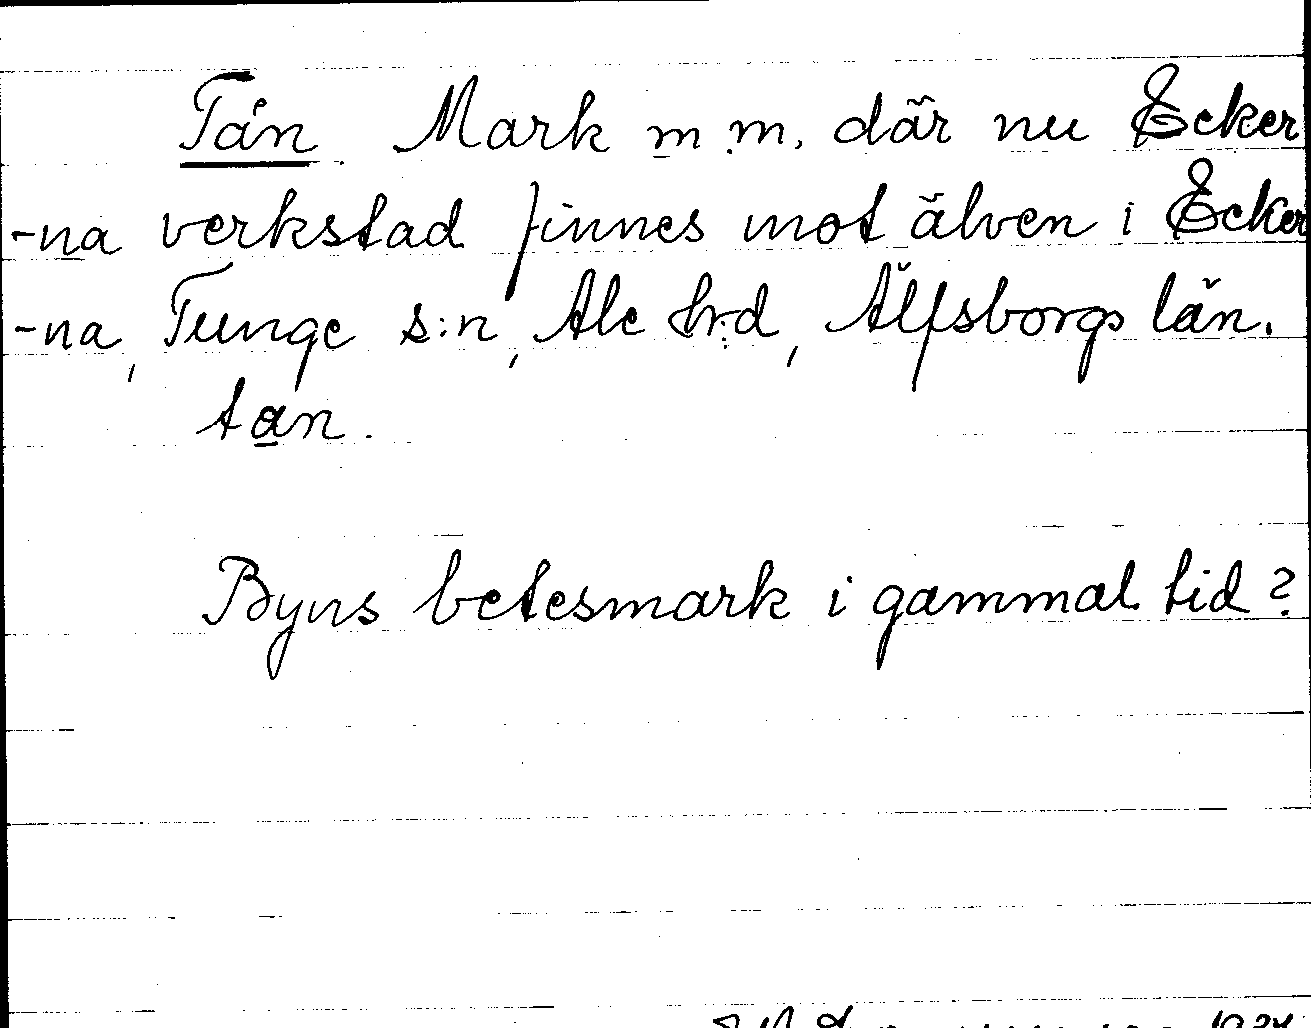 Tån Mark m.m. där nu Ecker
-na verkstad finnes mot älven i Ecker
-na, Tunge s:n, Ale hrd, Älfsborgs län.
tan.
Byns betesmark i gammal tid?